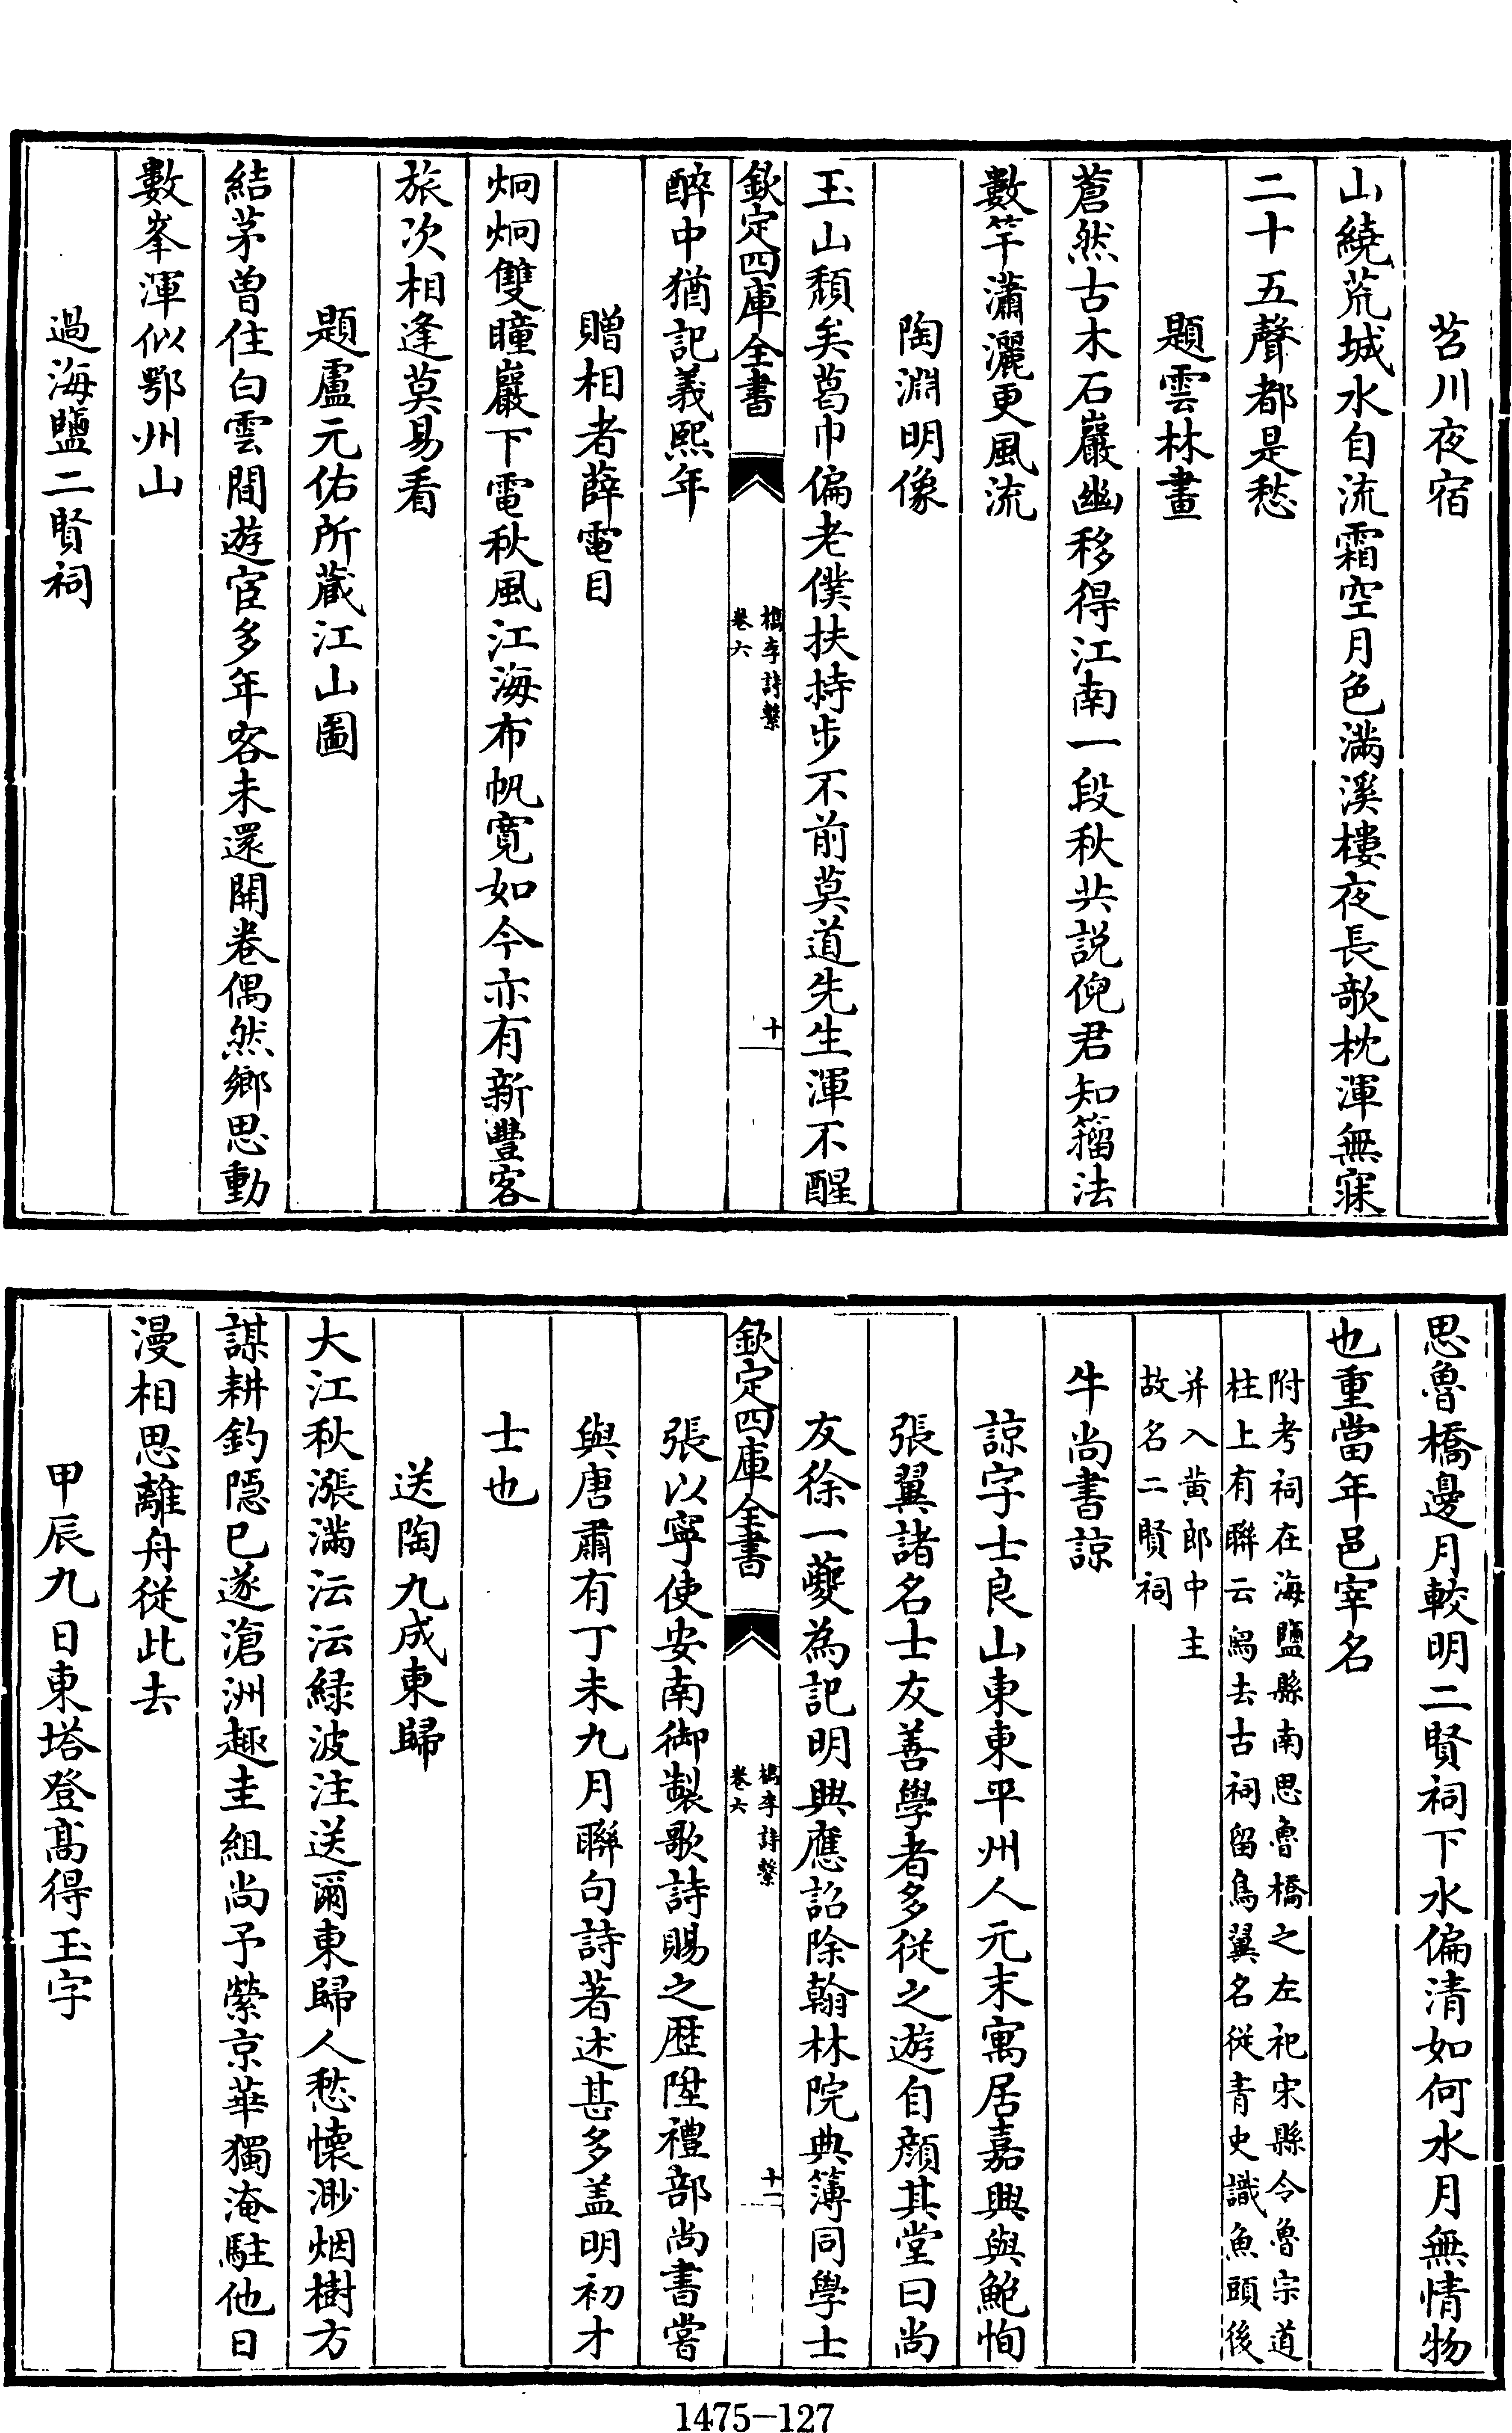 苕川夜宿
山繞荒城水自流霜空月色滿溪樓夜長欹枕渾無寐
二十五聲都是愁
題雲林畫
蒼然古木石巖幽移得江南一段秋共說倪君知籀法
數竿瀟灑更風流
陶淵明像
玉山頽矣葛巾偏老僕扶持步不前莫道先生渾不醒
欽定四庫全書
檇李詩繫
卷六
十
醉中猶記義熙年
贈相者薛電目
炯炯雙瞳巖下電秋風江海布帆寛如今亦有新豐客
旅次相逢莫易看
題盧元佑所藏江山圖
結茅曽住白雲間遊宦多年客未還開卷偶然鄉思動
數峯渾似鄂州山
過海鹽二賢祠
思魯橋邊月較明二賢祠下水偏清如何水月無情物
也重當年邑宰名
附考祠在海鹽縣南思魯橋之左祀宋縣令魯宗道
柱上有聯云舄去古祠留鳥翼名從青史識魚頭後
并入黄郎中主
故名二賢祠
牛尚書諒
諒字士良山東東平州人元末寓居嘉興與鮑恂
張翼諸名士友善學者多從之遊自顔其堂曰尚
友徐一夔為記明興應詔除翰林院典簿同學士
欽定四庫全書
檇李詩繫
卷六
十一
張以寧使安南御製歌詩賜之歴陞禮部尚書嘗
與唐肅有丁未九月聯句詩著述甚多盖明初才
士也
送陶九成東歸
大江秋漲滿沄沄緑波注送爾東歸人愁懷渺烟樹方
謀耕釣隠已遂滄洲趣圭組尚予縈京華獨淹駐他日
漫相思離舟從此去
甲辰九日東塔登髙得玉字
1475—127